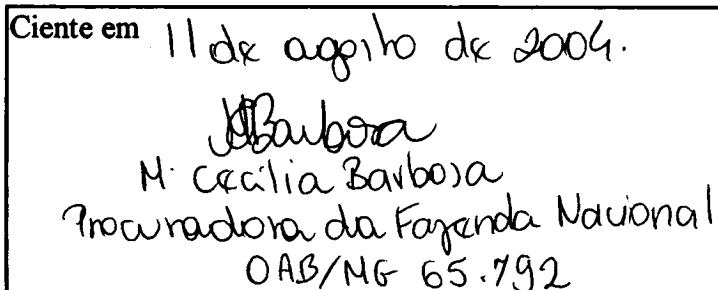 Ciente em 11 de agosto de 2004.
MCBarbosa
M. Cecília Barbosa
Procuradora da Fazenda Nacional
OAB/MG 65.792